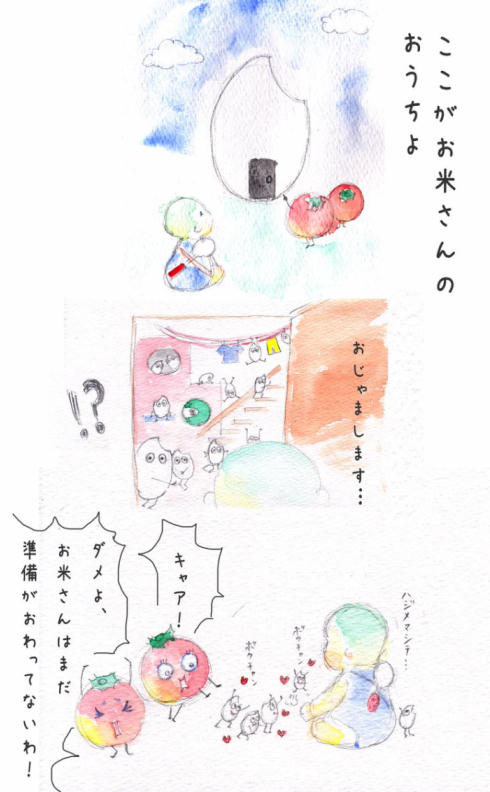 ここがお米さんの
おうちよ
おじゃまします…
!?
キャア!
ダメよ、
お米さんはまだ
準備がおわってないわ!
ハジメマシテ…
ボクチャン
ボクチャン